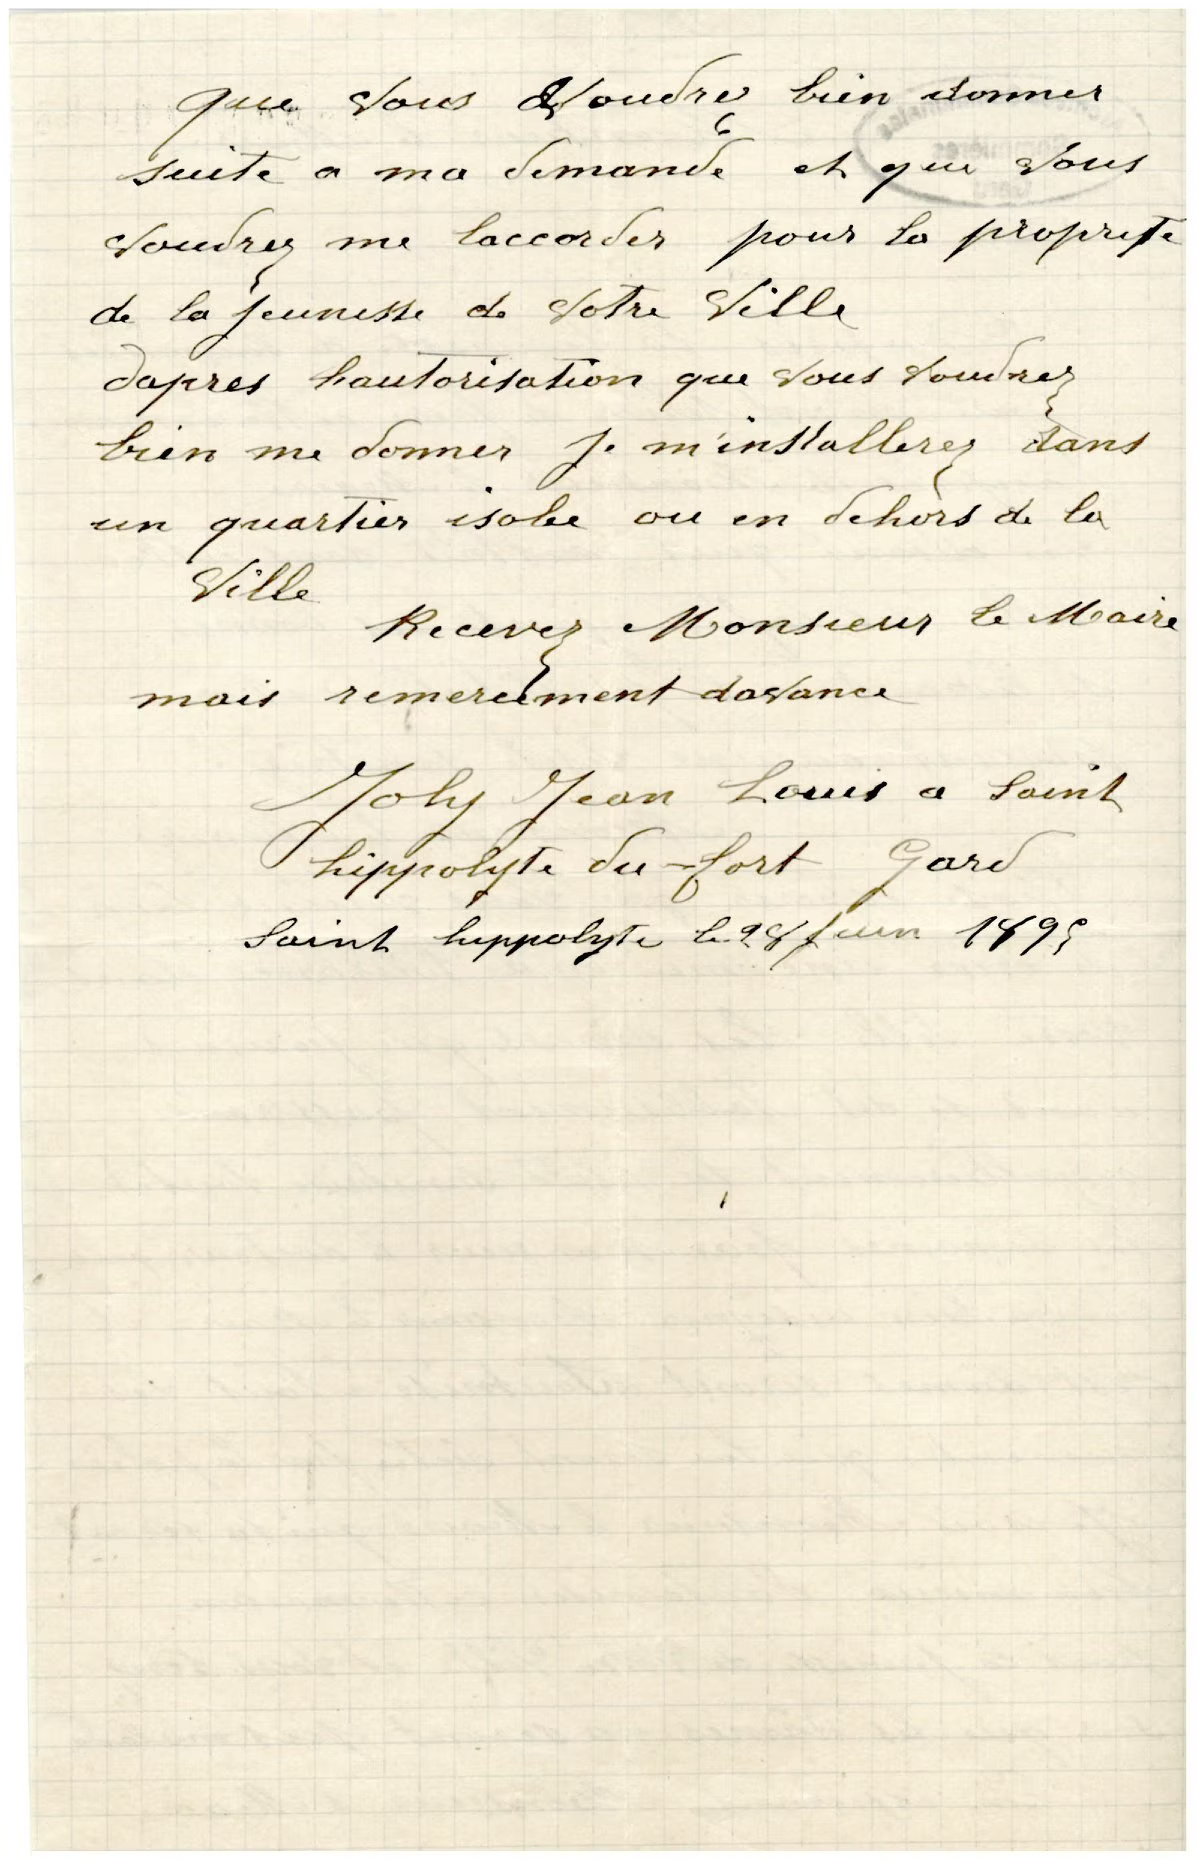 que vous voudrez bien donner
suite a ma demande et que vous
voudrez me laccorder pour la proprete
de la jeunesse de votre ville
dapres lautorisation que vous voudrez
bien me donner je m'installerez dans
un quartier isole ou en dehors de la
ville
Recevez Monsieur le Maire
mais remerciment davance
Joly Jean Louis a Saint
hippolyte du-fort Gard
Saint hippolyte le 28 juin